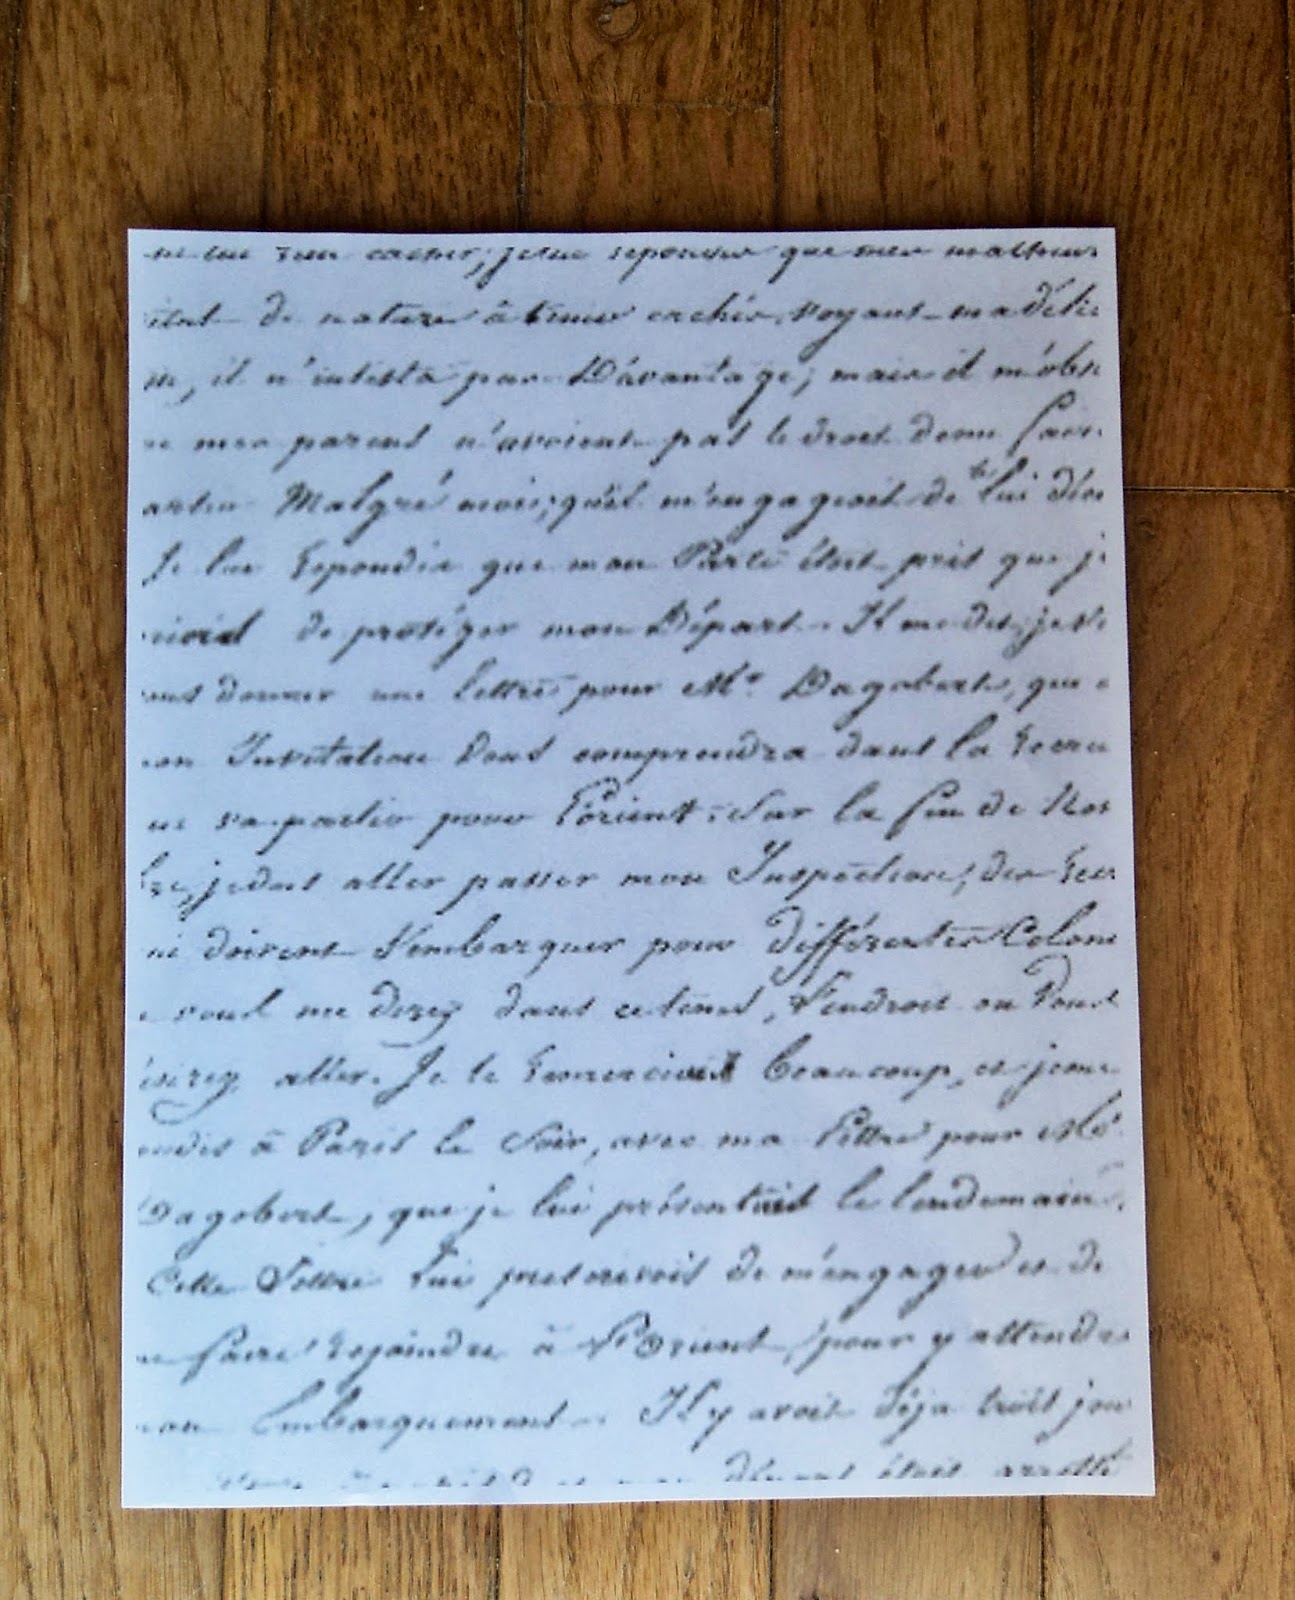 rien cacher; je lui repondis que mes malheurs
de nature à être cachés. Voyant ma délic
il n'insista pas Davantage; mais il m'obs
mes parens n'avoient pas le droit d'en faire
Malgré moi; qu'il m'engageoit de lui dire
Je lui Repondis que mon Parti étoit pris que je
de protéger mon Départ. Il me dit; je v
donner une lettre pour Mr. Dagobert, qui a
on Invitation Vous comprendra dans la Recru
va partir pour l'Orient. Sur la fin de Nov
bre, je dois aller passer mon Inspection, des Recr
doivent S'embarquer pour différentes Colon
vous me direz dans ce tems, l'endroit ou Vous
irez aller. Je le Remerciais beaucoup, et je me
endis à Paris le Soir, avec ma Lettre pour Mr
Dagobert, que je lui présentais le lendemain.
Cette Lettre Lui prescrivoit de m'engager et de
faire Rejoindre à L'Orient, pour y attendre
mon Embarquement. Il y avoit déja trois jou
départ étoit arretté